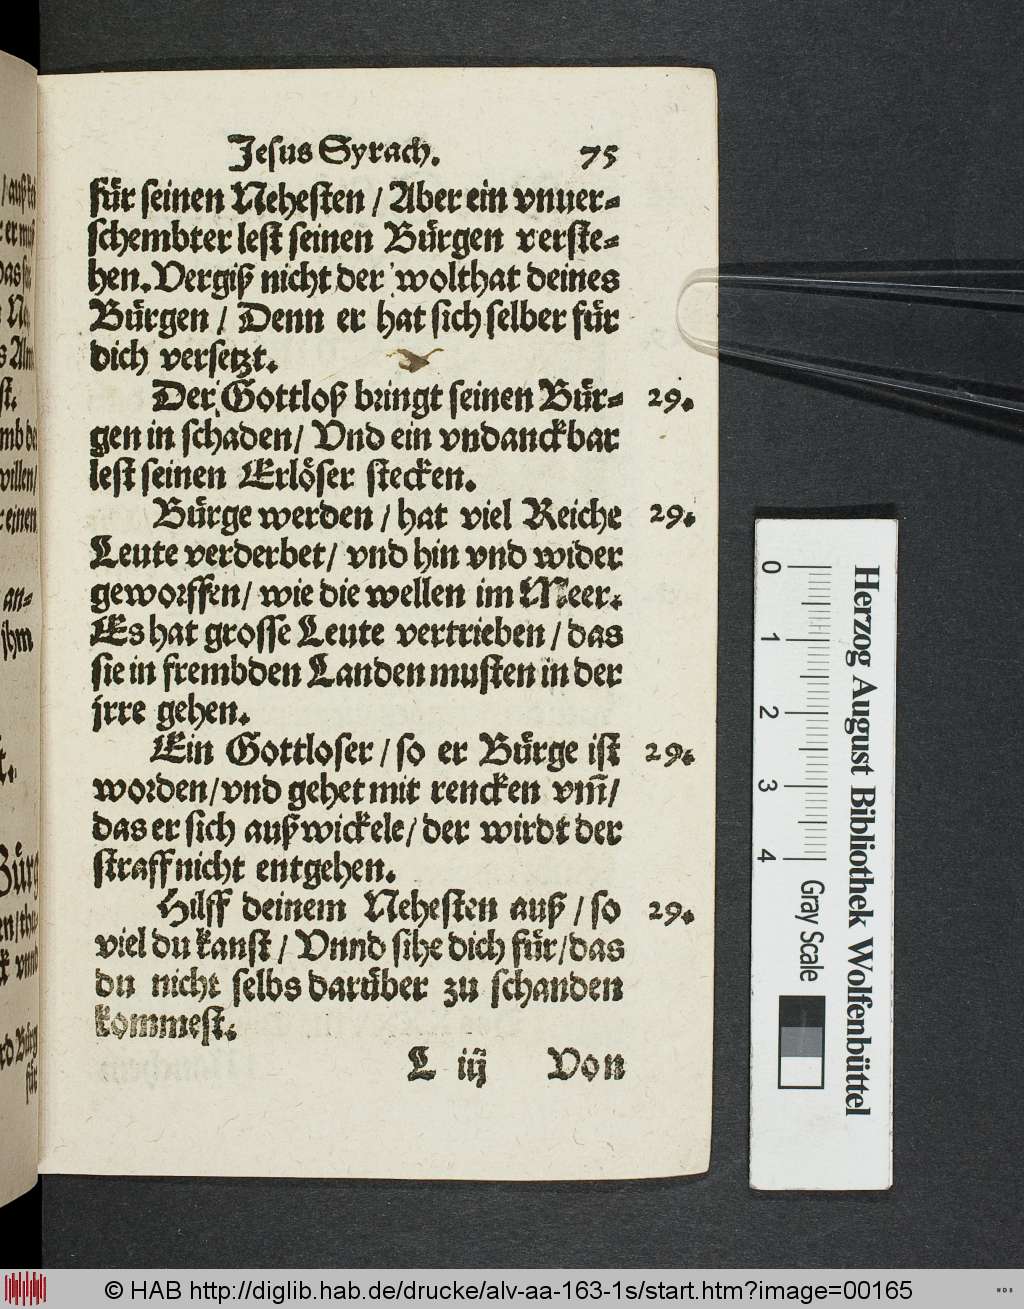 Jesus Syrach. 75
für seinen Nehesten / Aber ein vnuer-
schembter lest seinen Bürgen verste-
hen. Vergiß nicht der wolthat deines
Bürgen / Denn er hat sich selber für
dich versetzt.
Der Gottloß bringt seinen Bür- 29.
gen in schaden / Vnd ein vndanckbar
lest seinen Erlöser stecken.
Bürge werden / hat viel Reiche 29.
Leute verderbet / vnd hin vnd wider
geworffen / wie die wellen im Meer.
Es hat grosse Leute vertrieben / das
sie in frembden Landen musten in der
jrre gehen.
Ein Gottloser / so er Bürge ist 29.
worden / vnd gehet mit rencken vm̃ /
das er sich außwickele / der wirdt der
straff nicht entgehen.
Hilff deinem Nehesten auß / so 29.
viel du kanst / Vnnd sihe dich für / das
du nicht selbs darüber zu schanden
kommest.
L iij Von
0 1 2 3 4 Gray Scale
Herzog August Bibliothek Wolfenbüttel
© HAB http://diglib.hab.de/drucke/alv-aa-163-1s/start.htm?image=00165